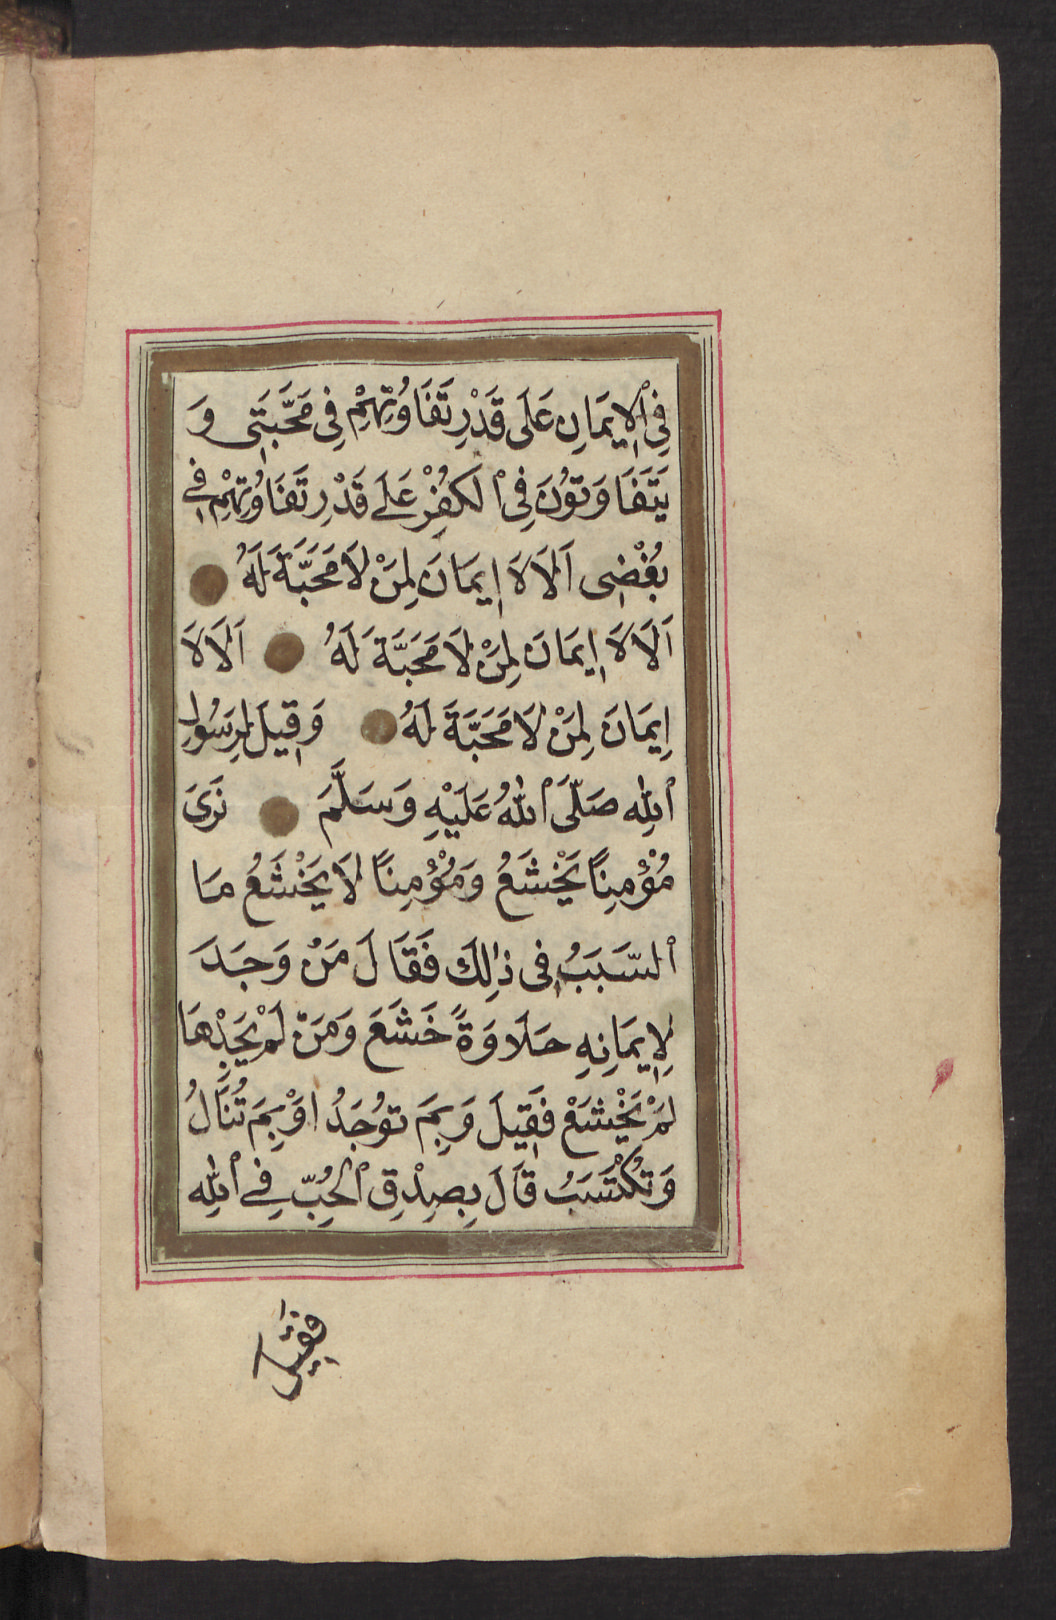 فِي ٱلْإِيمَانِ عَلَى قَدْرِ تَفَاوُتِهِمْ فِي مَحَبَّتِي وَ
يَتَفَاوَتُونَ فِي ٱلْكُفْرِ عَلَى قَدْرِ تَفَاوُتِهِمْ فِي
بُغْضِي اَلَا لَا إِيمَانَ لِمَنْ لَا مَحَبَّةَ لَهُ
اَلَا لَا إِيمَانَ لِمَنْ لَا مَحَبَّةَ لَهُ اَلَا لَا
إِيمَانَ لِمَنْ لَا مَحَبَّةَ لَهُ وَقِيلَ لِرَسُولِ
ٱللهِ صَلَّى ٱللهُ عَلَيْهِ وَسَلَّمَ نَرَى
مُؤْمِنًا يَخْشَعُ وَمُؤْمِنًا لَا يَخْشَعُ مَا
ٱلسَّبَبُ فِي ذٰلِكَ فَقَالَ مَنْ وَجَدَ
لِإِيمَانِهِ حَلَاوَةً خَشَعَ وَمَنْ لَمْ يَجِدْهَا
لَمْ يَخْشَعْ فَقِيلَ وَبِمَ تُوجَدُ اَوْ بِمَ تُنَالُ
وَتُكْتَسَبُ قَالَ بِصِدْقِ ٱلْحُبِّ فِي ٱللهِ
فَقِيلَ